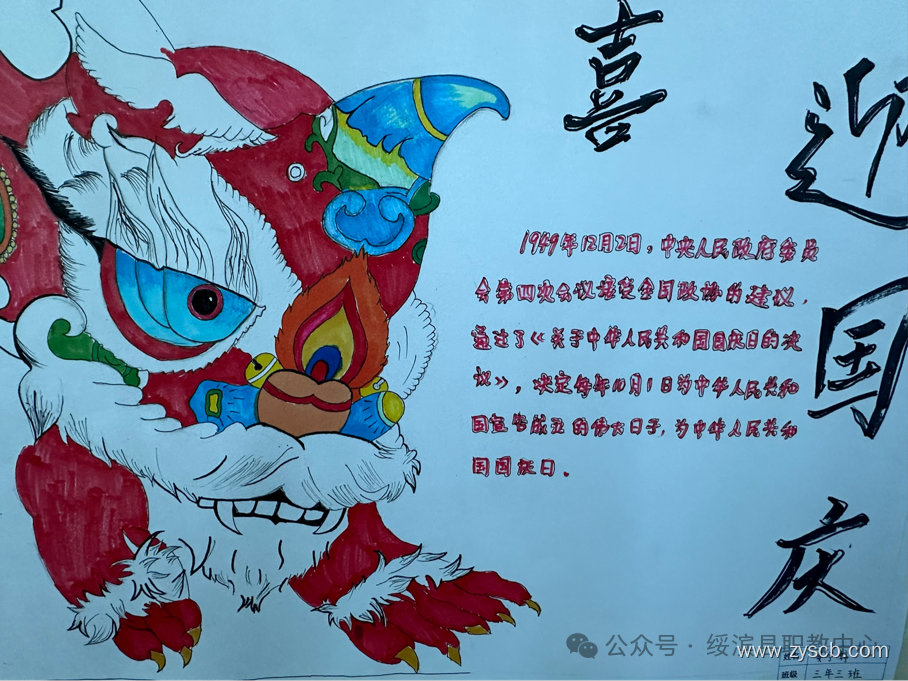 喜
迎
国
庆
1949年12月2日，中央人民政府委员
会第四次会议接受全国政协的建议，
通过了《关于中华人民共和国国庆日的决
议》，决定每年10月1日为中华人民共和
国宣告成立的伟大日子，为中华人民共和
国国庆日。
公众号 · 绥滨县职教中心
www.zyscb.com
班级 三年三班